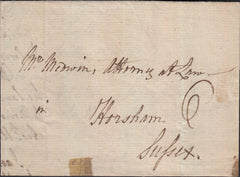 Mr. Medwin, Attorney at Law
in
Horsham
6
Sussex.